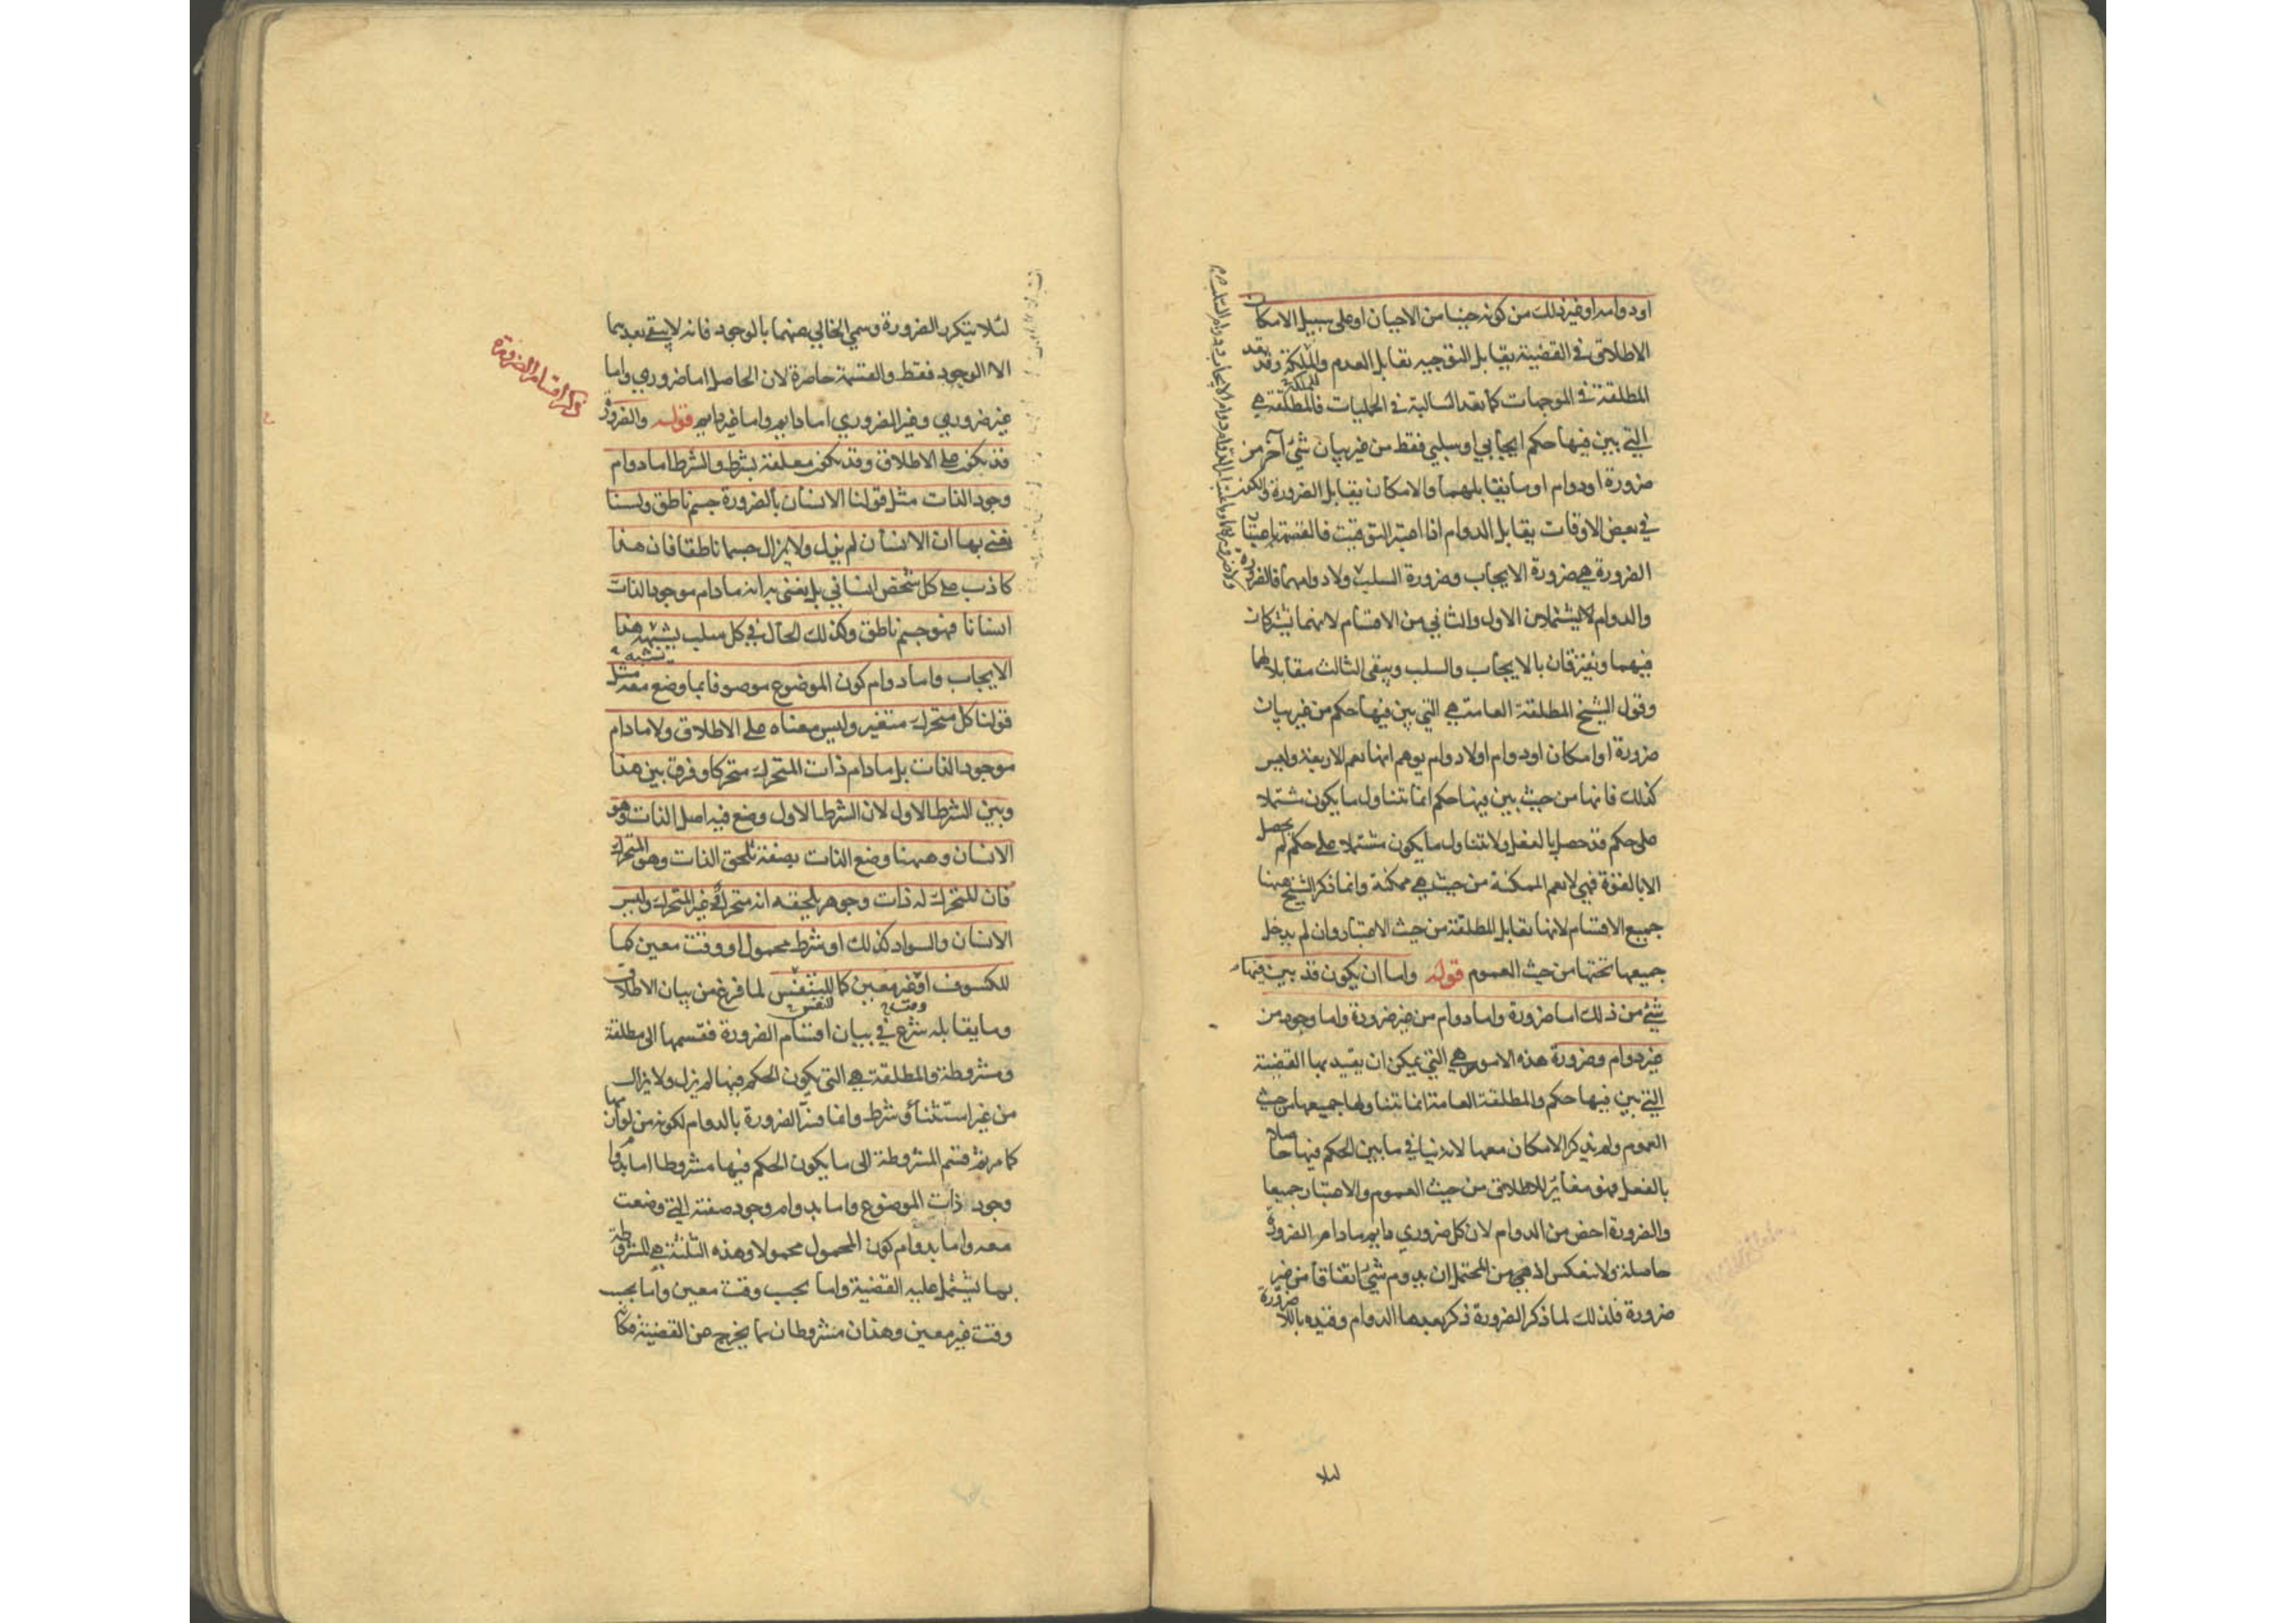 او دوامه او غير ذلك من كونه حينا من الاحيان او على سبيل الامكان
الاطلاق في القضية يقابل التوجيه تقابل العدم والملكة وقد تعد
المطلقة في الموجهات كما تعد السالبة في الحمليات فالمطلقة هي
التي بين فيها حكم ايجابي او سلبي فقط من غير بيان شئ آخر من
ضرورة او دوام او ما يقابلهما والامكان يقابل الضرورة والكون
في بعض الاوقات يقابل الدوام اذا اعتبر التوقيت فالقضية باعتبار
الضرورة هي ضرورة الايجاب وضرورة السلب ولا دوامهما فالضرورة
والدوام لا يشتملان الاول والثاني من الاقسام لانهما تشتركان
فيهما وتفترقان بالايجاب والسلب ويبقى الثالث مقابلا لهما
وقول الشيخ المطلقة العامة هي التي بين فيها حكم من غير بيان
ضرورة او امكان او دوام او لا دوام يوهم انها تعم الاربعة وليس
كذلك فانها من حيث بين فيها حكم انما تتناول ما يكون مشتملا
على حكم قد حصل بالفعل ولا تتناول ما يكون مشتملا على حكم لم يحصل
الا بالقوة فهي لا تعم الممكنة من حيث هي ممكنة وانما ذكر الشيخ ههنا
جميع الاقسام لانها تقابل المطلقة من حيث الاعتبار وان لم يدخل
جميعها تحتها من حيث العموم قوله واما ان يكون قد بين فيها
شئ من ذلك اما ضرورة واما دوام من غير ضرورة واما وجود من
غير دوام وضرورة هذه الامور هي التي يمكن ان يقيد بها القضية
التي بين فيها حكم والمطلقة العامة انما تتناولها جميعها من حيث
العموم ولم يذكر الامكان معها لانه ينافي ما بين الحكم فيها حاصلا
بالفعل فهو مغاير للاطلاق من حيث العموم والاعتبار جميعا
والضرورة اخص من الدوام لان كل ضروري دايم ما دام الضرورة
حاصلة ولا ينعكس اذ هي من المحتمل ان يدوم شئ اتفاقا من غير
ضرورة فلذلك لما ذكر الضرورة ذكر بعدها الدوام وقيده باللاضرورة
لئلا
لئلا يتكرر الضرورة وسمي الخالي عنهما بالوجود فانه لا يبقى بعدهما
الا الوجود فقط والقسمة حاصرة لان الحاصل اما ضروري واما
غير ضروري وغير الضروري اما دايم واما غير دايم قوله والضرورة
قد يكون على الاطلاق وقد يكون معلقة بشرط والشرط اما دوام
وجود الذات مثل قولنا الانسان بالضرورة جسم ناطق ولسنا
نعني بها ان الانسان لم يزل ولا يزال جسما ناطقا فان هذا
كاذب على كل شخص انساني بل يعنى به انه ما دام موجود الذات
انسانا فهو جسم ناطق وكذلك الحال في كل سلب يشبه هذا
الايجاب واما دوام كون الموضوع موصوفا بما وضع معه مثل
قولنا كل متحرك متغير وليس معناه على الاطلاق ولا ما دام
موجود الذات بل ما دام ذات المتحرك متحركا وفرق بين هذا
وبين الشرط الاول لان الشرط الاول وضع فيه اصل الذات وهو
الانسان وههنا وضع الذات بصفة تلحق الذات وهو المتحرك
فان المتحرك له ذات وجوهر يلحقه انه متحرك وغير المتحرك وليس
الانسان والسواد كذلك او شرط محمول او وقت معين كما
للكسوف او غير معين كما للتنفس لما فرغ من بيان الاطلاق
وما يقابله شرع في بيان اقسام الضرورة فقسمها الى مطلقة
ومشروطة والمطلقة هي التي يكون الحكم فيها لم يزل ولا يزال
من غير استثناء وشرط وانما فسر الضرورة بالدوام لكونه من لوازمها
كما مر ثم قسم المشروطة الى ما يكون الحكم فيها مشروطا اما بدوام
وجود ذات الموضوع واما بدوام وجود صفته التي وضعت
معه واما بدوام كون المحمول محمولا وهذه الثلثة هي المشروطة
بما يشتمل عليه القضية واما بحسب وقت معين واما بحسب
وقت غير معين وهذان مشروطان بما يخرج عن القضية فكان
ذكر اقسام الضرورة